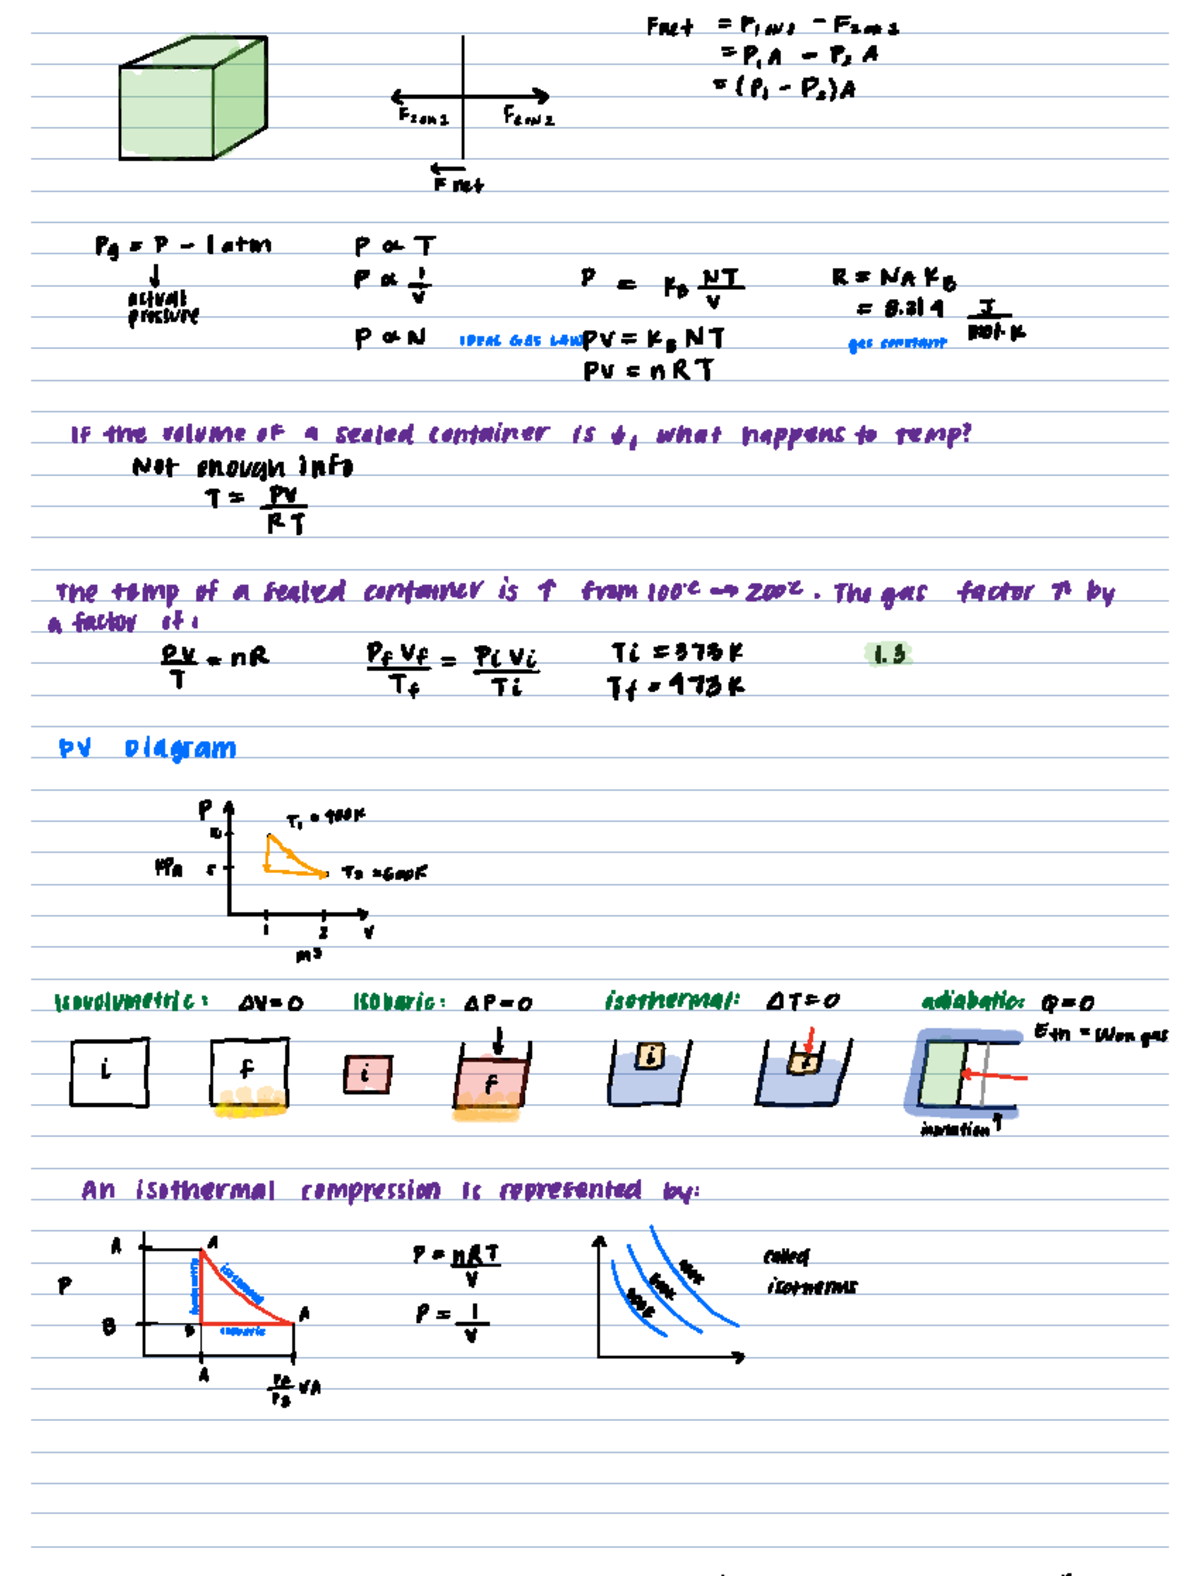 Fnet = F1 on 2 - F2 on 1
= P₁A - P₂A
= (P₁ - P₂)A
F2 on 1
F net
Pg = P - 1 atm
↓
actual
pressure
P ∝ T
P ∝ 1/V
P ∝ N
P = KB NT/V
IDEAL GAS LAW PV = KB NT
PV = nRT
R = NA KB
= 8.314 J/mol·K
gas constant
If the volume of a sealed container is ↓, what happens to temp?
Not enough info
T = PV/RT
The temp of a sealed container is ↑ from 100°C → 200°C. The gas factor ↑ by
a factor of:
PV/T = nR
Pf Vf/Tf = Pi Vi/Ti
Ti = 373 K
Tf = 473 K
1.3
PV Diagram
P
10
KPa 5
1 2 V
m³
Isovolumetric: ΔV=0
Isobaric: ΔP=0
isothermal: ΔT=0
adiabatic: Q=0
Eth = W on gas
i
f
i
f
i
i
An isothermal compression is represented by:
A
P
B
A
isothermal
A
B
isobaric
A
PA/PB VA
P = nRT/V
P = 1/V
called
isotherms